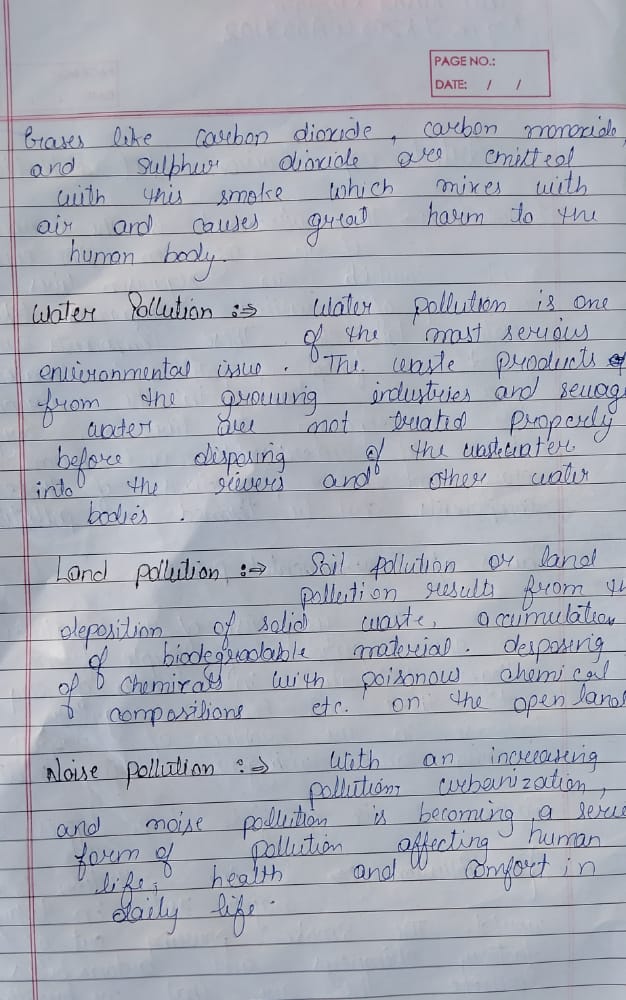 PAGE NO.:
DATE: / /
Gases like carbon dioxide, carbon monoxide,
and sulphur dioxide are emitted
with this smoke which mixes with
air and causes great harm to the
human body.
Water Pollution :⇒ Water pollution is one
of the most serious
environmental issue. The waste products of
from the growing industries and sewag
water are not treated properly
before disposing of the wastewater
into the rievers and other water
bodies.
Land pollution :⇒ Soil pollution or land
pollution results from th
deposition of solid waste, accumulation
of biodegradable material. desposing
of chemicals with poisonous chemical
compositions etc. on the open land
Noise pollution :⇒ With an increasing
pollution, urbanization,
and noise pollution is becoming a seriu
form of pollution affecting human
life, health and comfort in
daily life.